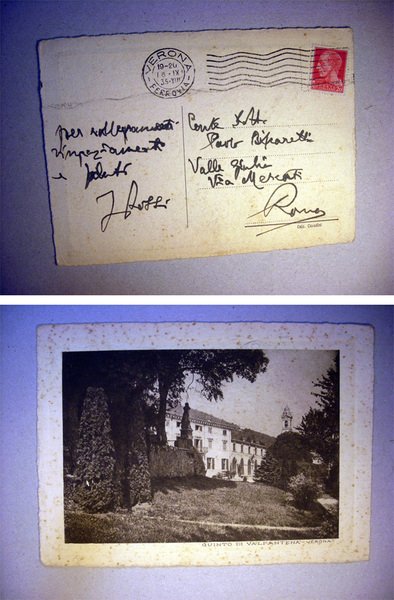 VERONA
19-20
18·IX
35-XIII
FERROVIA
per rallegramenti
ringraziamenti
e saluti
J Rossi
Conte
Paolo
Valle Giulia
Via Mercati
Roma
QUINTO DI VALPANTENA - VERONA